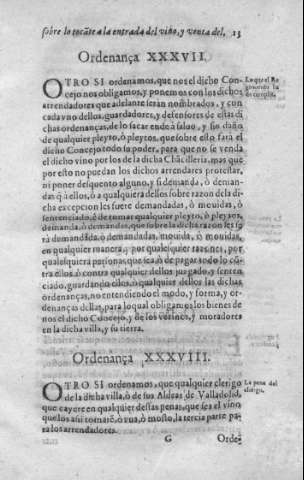 sobre lo tocãte a la entrada del vino, y venta del. 23
Ordenança XXXVII.
OTRO SI ordenamos, que nos el dicho Con-
cejo nos obligamos, y ponemos con los dichos
arrendadores que adelante seràn nombrados, y con
cada vno dellos, guardadores, y defensores de estas di
chas ordenanças, de lo sacar ende à saluo, y sin daño
de qualquier pleyto, ò pleytos, que sobre esto farà el
dicho Concejo todo su poder, para que no se venda
el dicho vino por los de la dicha Chãcilleria, mas que
por esto no puedan los dichos arrendadores protestar,
ni poner descuento alguno, y si demanda, ò deman-
das q̃ à ellos, ò a qualquiera dellos sobre razon de la di
cha excepcion les fuere demandadas, ò mouidas, ò
sentenciado, è de tomar qualquier pleyto, ò pleytos,
demanda, ò demandas, que sobre la dicha razon les se
rà demandada, ò demandadas, mouida, ò mouidas,
en qualquier manera, y por qualesquier razones, por
qualesquiera personas que sea, ò de pagar todo lo cõ-
tra ellos, ò contra qualquier dellos juzgado, y senten
ciado, guardando ellos, ò qualquier dellos las dichas
ordenanças, no entendiendo el modo, y forma, y or-
denanças dellas, para lo qual obligamos los bienes de
nos el dicho Concejo, y de los vezinos, y moradores
en la dicha villa, y su tierra.
Ordenança XXXVIII.
OTRO SI ordenamos, que qualquier clerigo
de la dicha villa, ò de sus Aldeas de Valladolid,
que cayere en qualquier destas penas, que sea el vino
que los assi tomarè, ò vua, ò mosto, la tercia parte pa-
ra los arrendadores.
La pena del
clerigo.
G Orde-